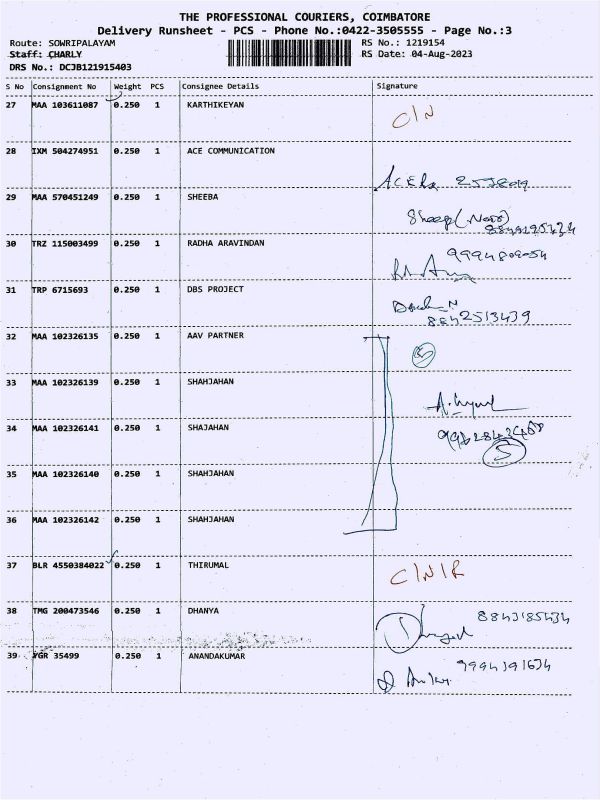 THE PROFESSIONAL COURIERS, COIMBATORE
Delivery Runsheet - PCS - Phone No.:0422-3505555 - Page No.:3
Route: SOWRIPALAYAM RS No.: 1219154
Staff: CHARLY RS Date: 04-Aug-2023
DRS No.: DCJB121915403
S No Consignment No Weight PCS Consignee Details Signature
27 MAA 103611087 0.250 1 KARTHIKEYAN
28 IXM 504274951 0.250 1 ACE COMMUNICATION
29 MAA 570451249 0.250 1 SHEEBA
30 TRZ 115003499 0.250 1 RADHA ARAVINDAN
31 TRP 6715693 0.250 1 DBS PROJECT
32 MAA 102326135 0.250 1 AAV PARTNER
33 MAA 102326139 0.250 1 SHAHJAHAN
34 MAA 102326141 0.250 1 SHAJAHAN
5
35 MAA 102326140 0.250 1 SHAHJAHAN
36 MAA 102326142 0.250 1 SHAHJAHAN
37 BLR 4550384022 0.250 1 THIRUMAL C/N/R
38 TMG 200473546 0.250 1 DHANYA
39 35499 0.250 1 ANANDAKUMAR